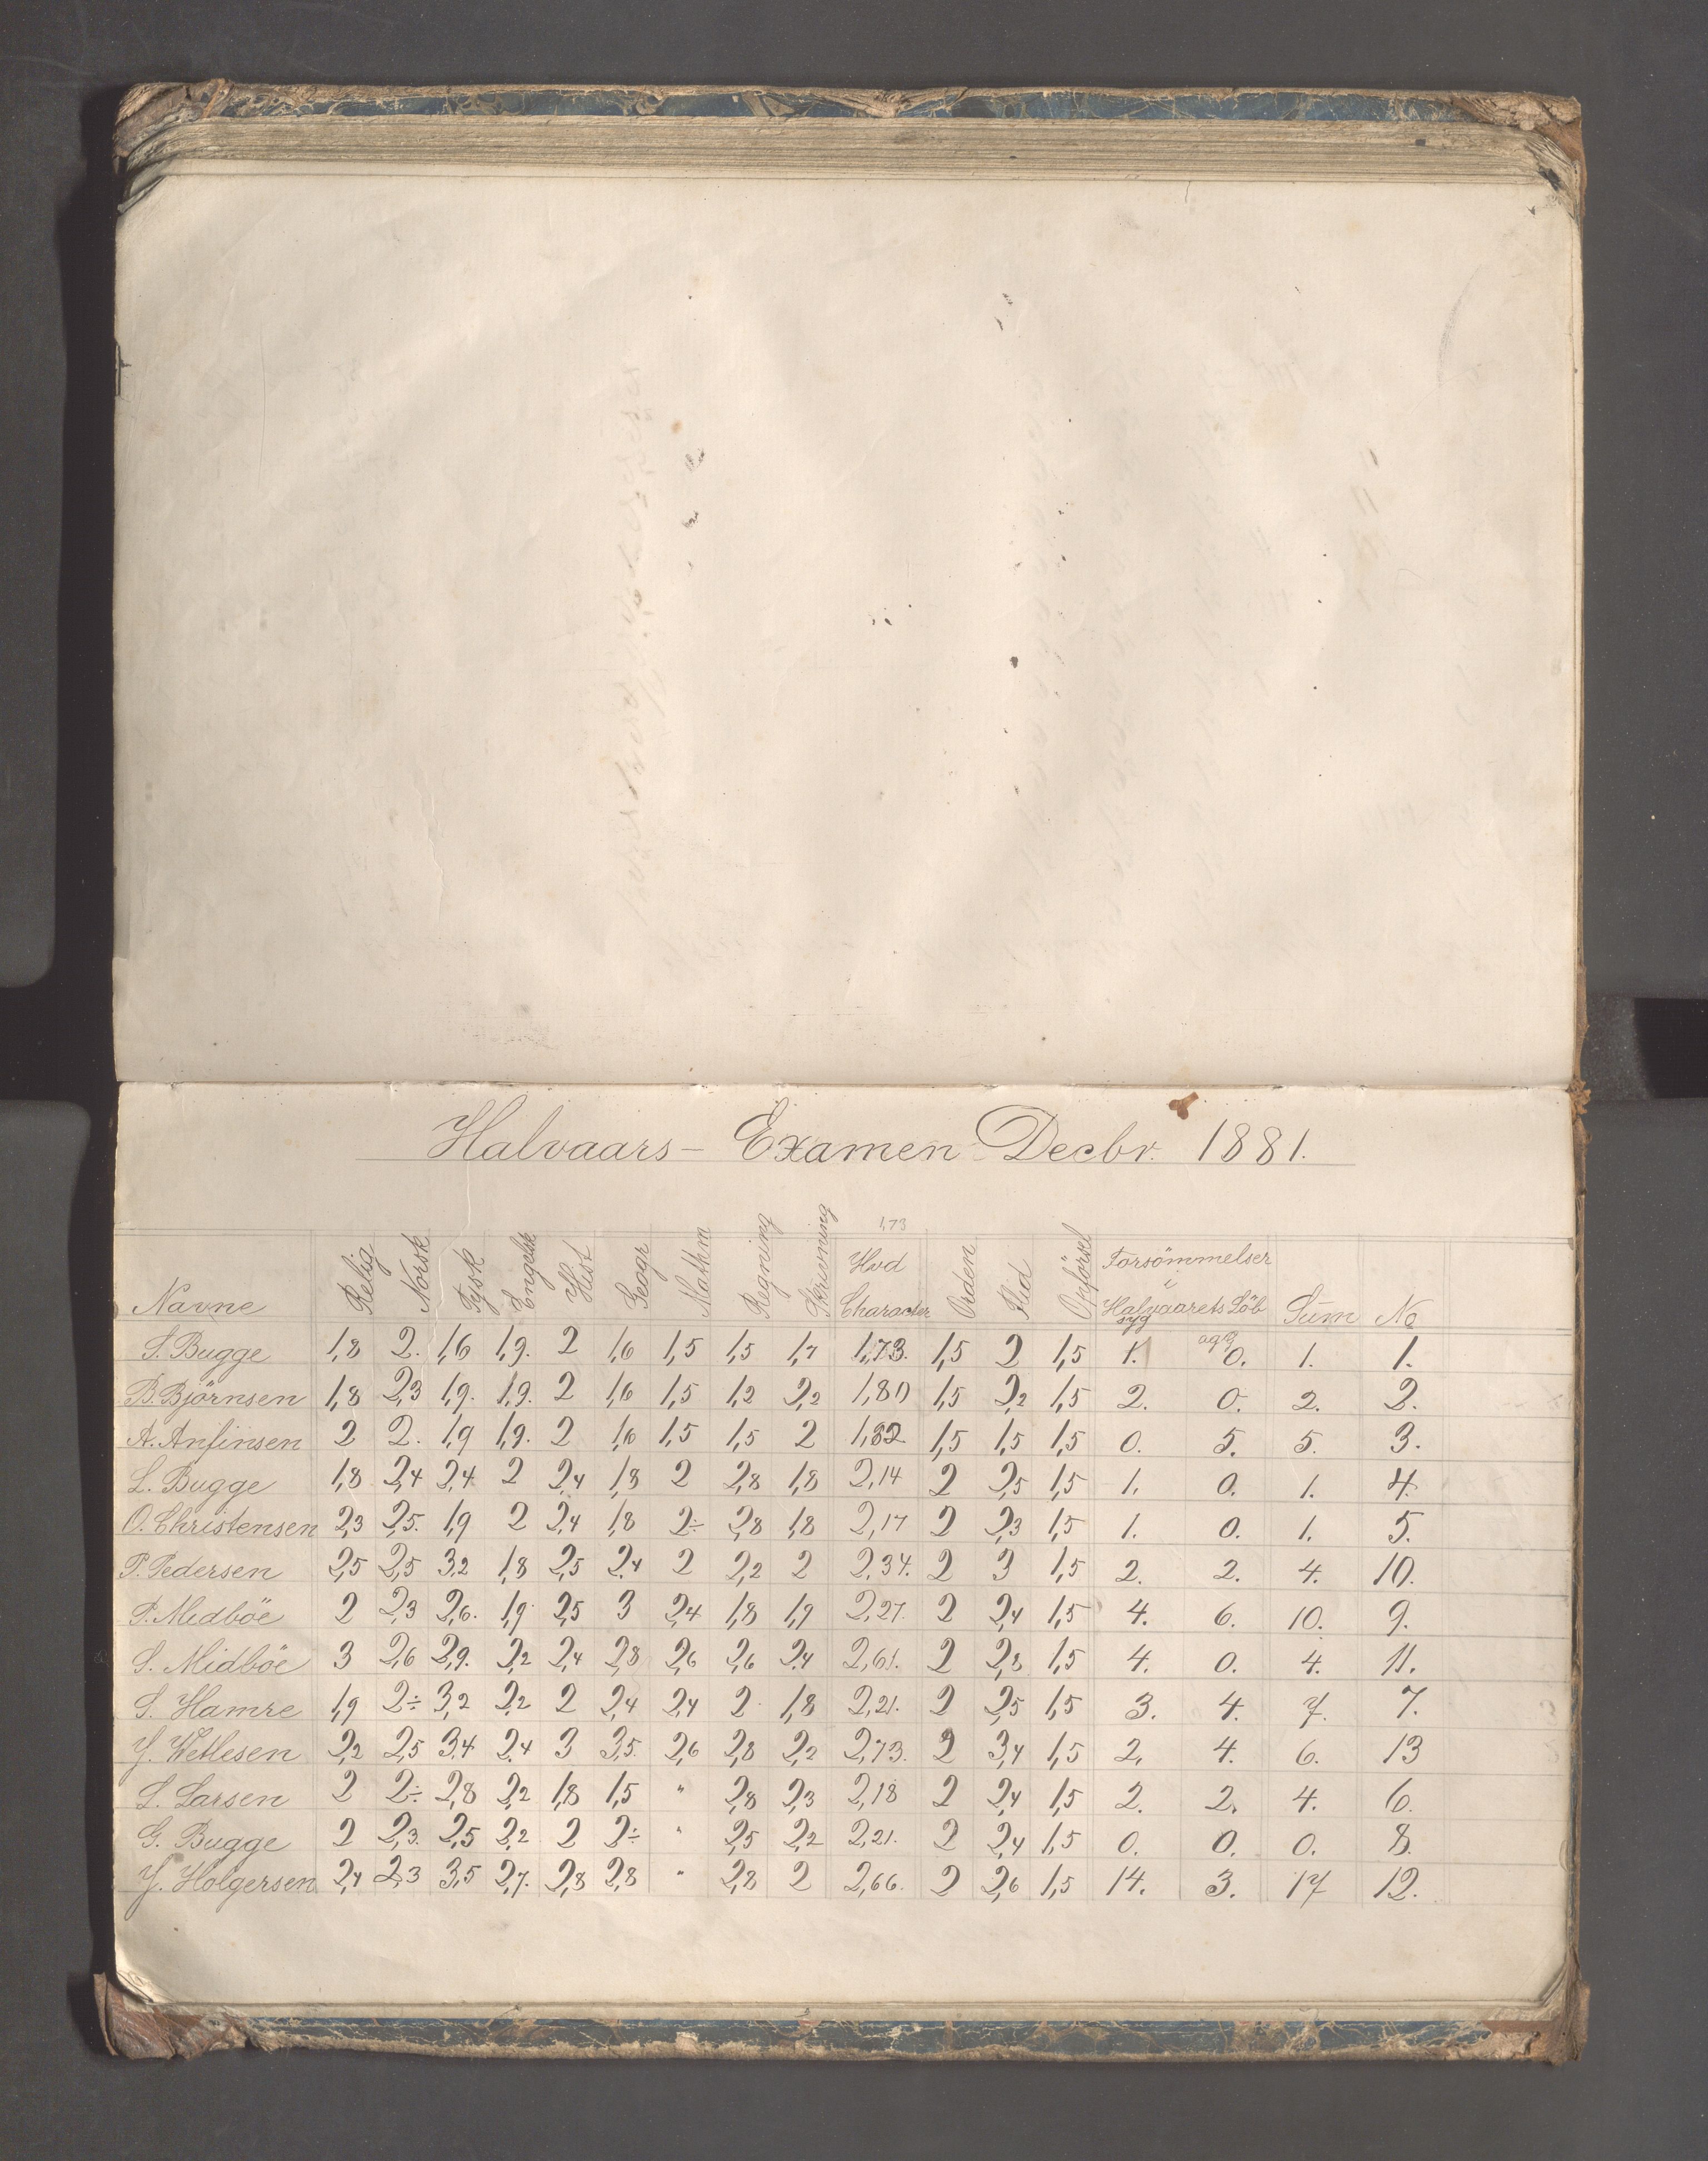 Halvaars - Examen Decbr. 1881.
1,73
Navne Relig Norsk Tysk Engelsk Hist Geogr Mathm Regning Skrivning Hvd Character Orden Flid Opförsel Forsömmelser i Halvaarets Löb Sum No
syg
S. Bugge 1,8 2. 1,6 1,9. 2 1,6 1,5 1,5 1,7 1,73. 1,5 2 1,5 1. 0. 1. 1.
B. Björnsen 1,8 2,3 1,9. 1,9. 2 1,6 1,5 1,2 2,2 1,80 1,5 2,2 1,5 2. 0. 2. 2.
A. Anfinsen 2 2. 1,9 1,9. 2 1,6 1,5 1,5 2 1,82 1,5 1,5 1,5 0. 5. 5. 3.
L. Bugge 1,8 2,4 2,4 2 2,4 1,8 2 2,8 1,8 2,14 2 2,5 1,5 1. 0. 1. 4.
O. Christensen 2,3 2,5. 1,9 2 2,4 1,8 2÷ 2,8 1,8 2,17 2 2,3 1,5 1. 0. 1. 5.
P. Pedersen 2,5 2,5 3,2 1,8 2,5 2,4 2 2,2 2 2,34. 2 3 1,5 2. 2. 4. 10.
P. Midböe 2 2,3 2,6. 1,9 2,5 3 2,4 1,8 1,9 2,27. 2 2,4 1,5 4. 6. 10. 9.
S. Midböe 3 2,6 2,9. 2,2 2,4 2,8 2,6 2,6 2,4 2,61. 2 2,8 1,5 4. 0. 4. 11.
S. Hamre 1,9 2÷ 3,2 2,2 2 2,4 2,4 2 1,8 2,21. 2 2,5 1,5 3. 4. 7. 7.
J. Wetlesen 2,2 2,5 3,4 2,4 3 3,5. 2,6 2,8 2,2 2,73. 2 3,4 1,5 2. 4. 6. 13
L. Larsen 2 2÷ 2,8 2,2 1,8 1,5 " 2,8 2,3 2,18 2 2,4 1,5 2. 2. 4. 6.
G. Bugge 2 2,3. 2,5 2,2 2 2÷ " 2,5 2,2 2,21. 2 2,4 1,5 0. 0. 0. 8.
J. Holgersen 2,4 2,3 3,5 2,7. 2,8 2,8 " 2,8 2 2,66. 2 2,6 1,5 14. 3. 17 12.